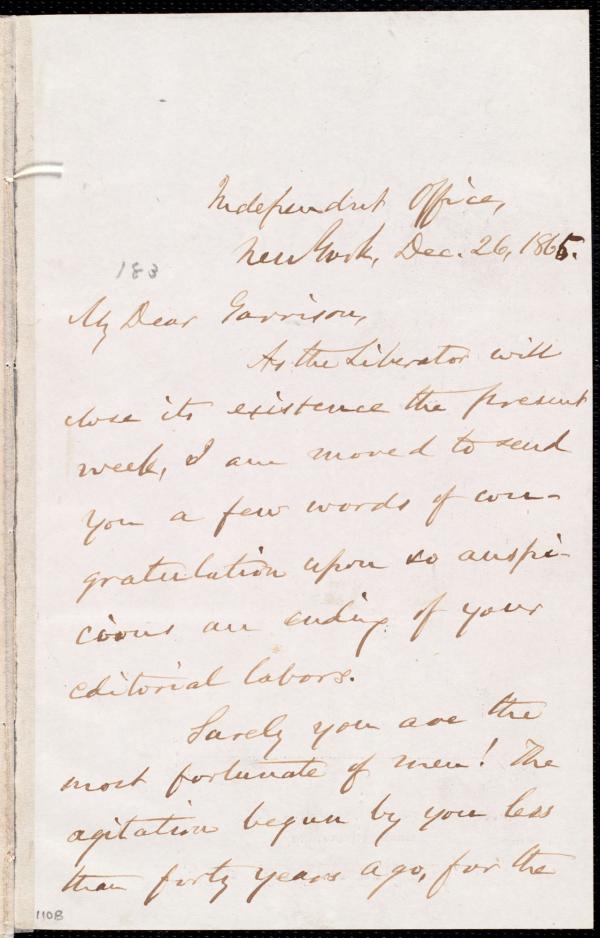 Independent Office,
New York, Dec. 26, 1865.
183
My Dear Garrison,
As the Liberator will
close its existence the present
week, I am moved to send
you a few words of con-
gratulation upon so auspi-
cious an ending of your
editorial labors.
Surely you are the
most fortunate of men! The
agitation begun by you less
than forty years ago, for the
110B